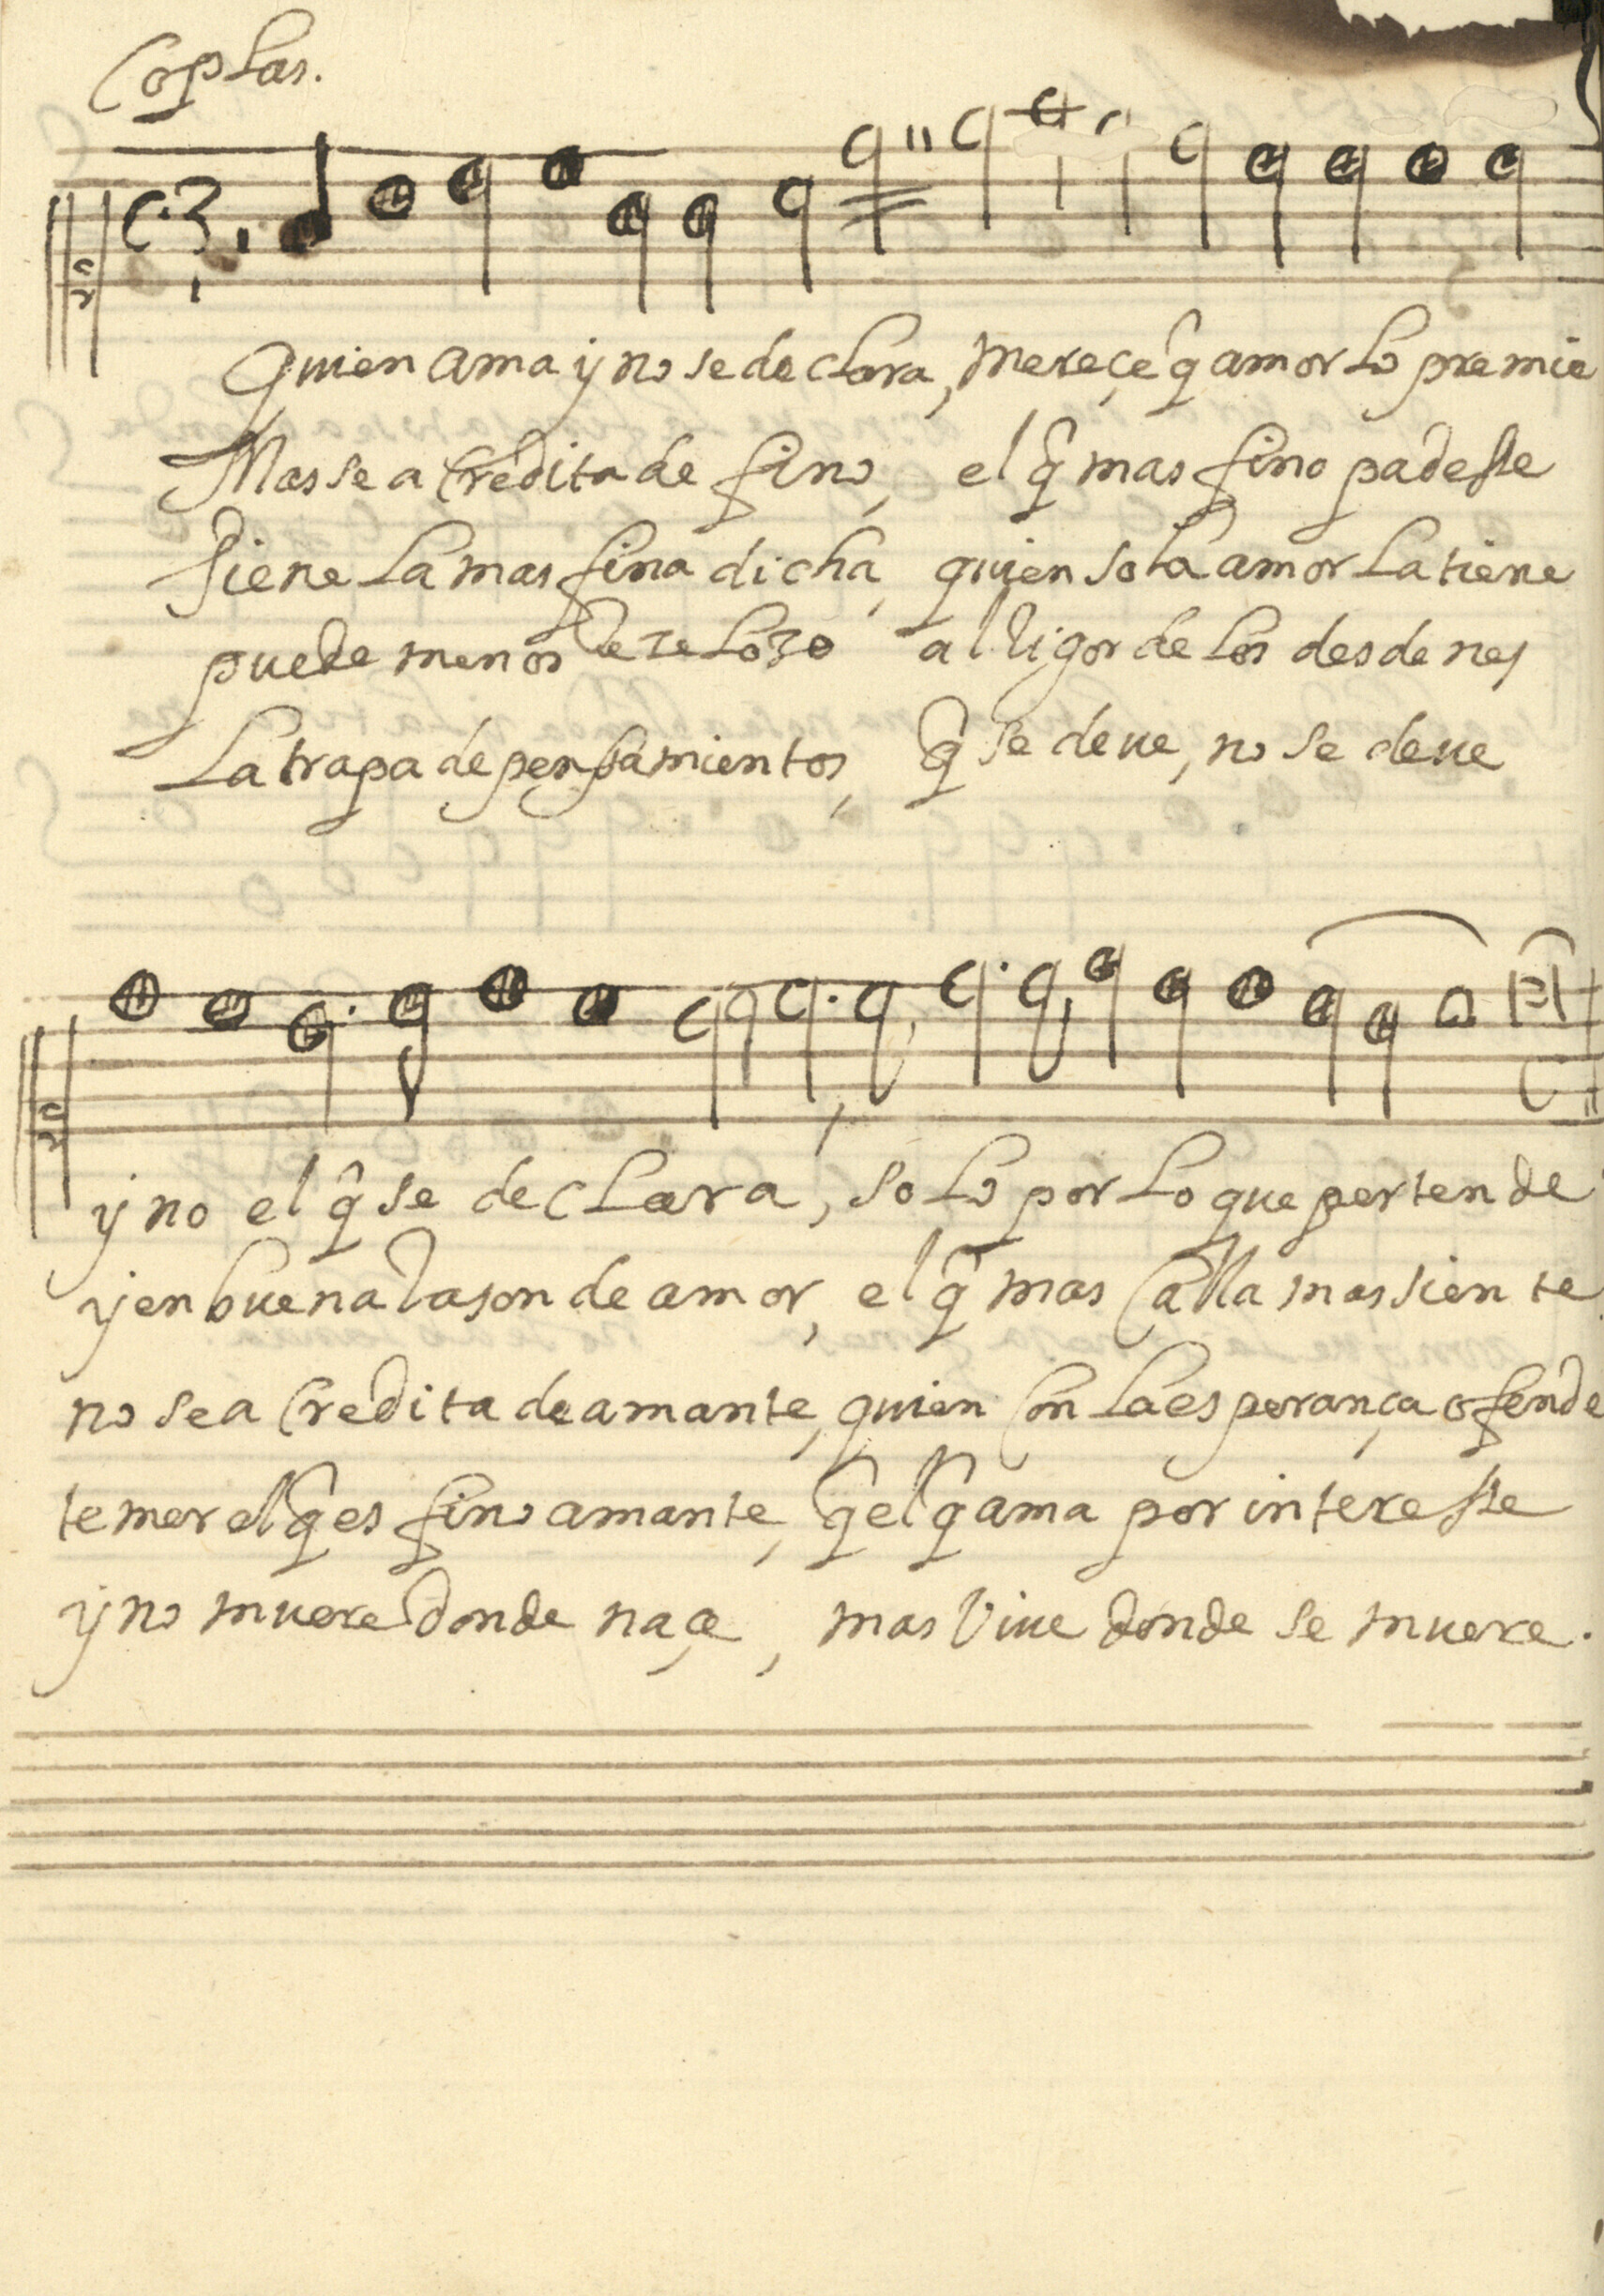 Coplas.
Quien ama y no se declara, mereçe q̂ amor lo premie
Mas se a Credita de fino, el q̂ mas fino padesse
tiene la mas fina dicha, quien sola amor la tiene
puede menos
al rigor de los desdenes
La trapa de pensamientos, q̂ se deue, no se deue
y no el q̂ se declara, solo por lo que pertende
y en buena rason de amor, el q̂ mas Calla mas siente
no se a Credita de amante, quien Con la esperança ofende
temer el q̂ es fino amante, q̂ el q̂ ama por interesse
y no muere donde naçe, mas Viue donde se muere.